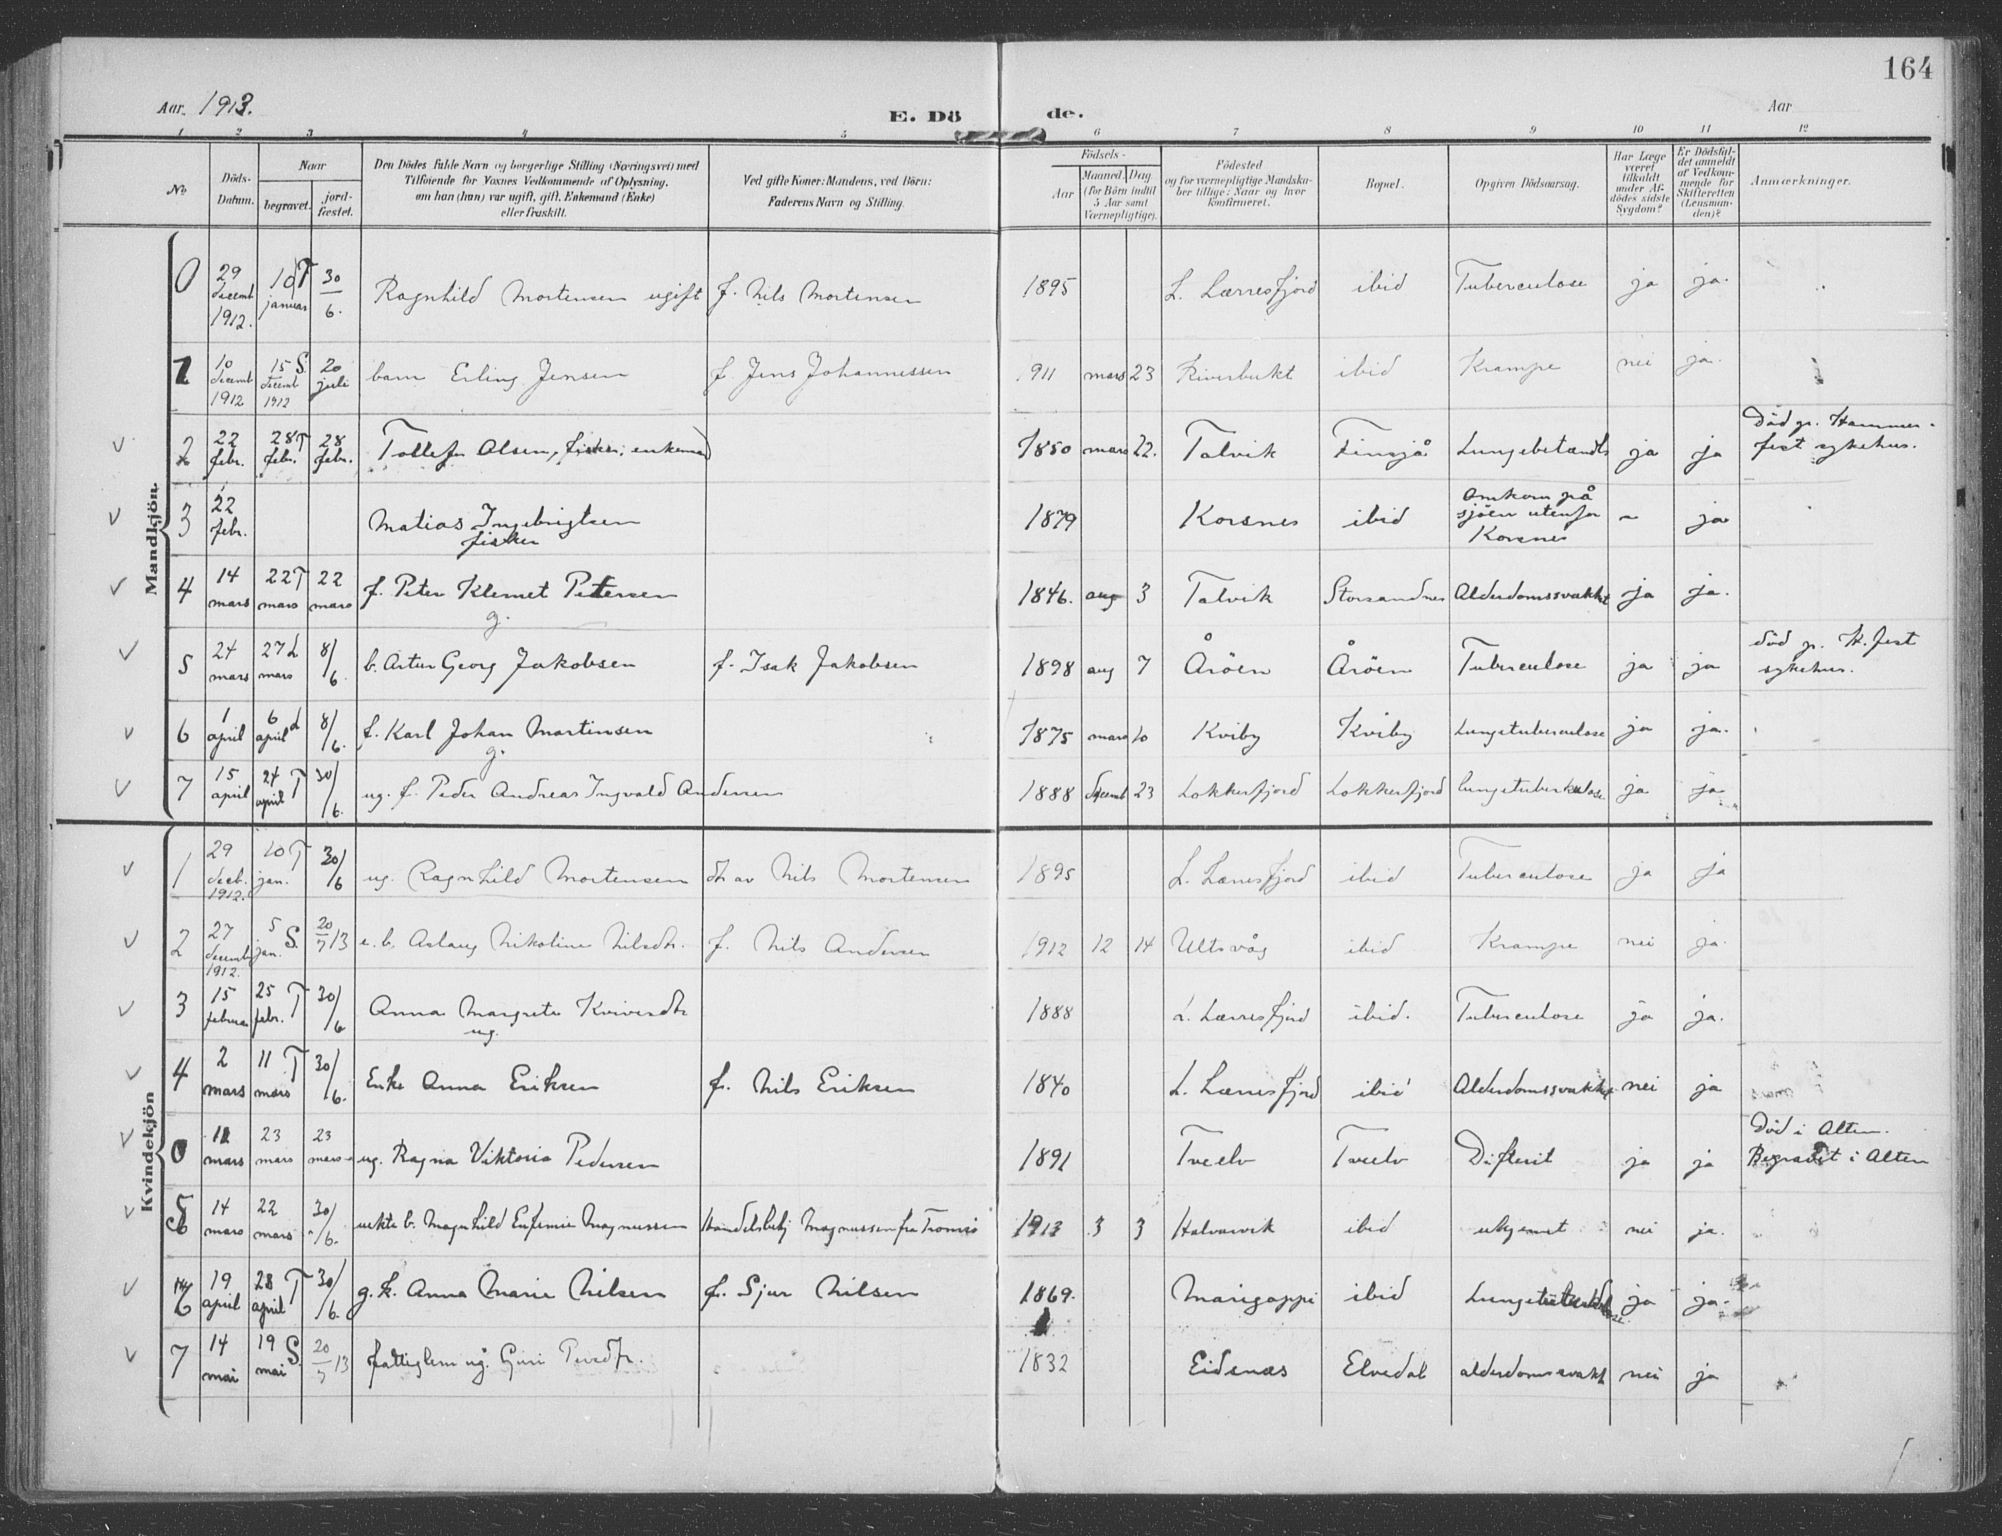 164
Aar. 1913.
E. Dö
de.
Aar
1 2 3 4 5 6 7 8 9 10 11 12
No
Döds-Datum.
Naar
begravet.
jord-fæstet.
Den Dödes fulde Navn og borgerlige Stilling (Næringsvei) med
Tilföiende for Voxnes Vedkommende af Oplysning,
om han (hun) var ugift, gift, Enkemand (Enke)
eller fraskilt.
Ved gifte Koner: Mandens, ved Börn:
Faderens Navn og Stilling.
Födsels-
Aar
Maaned. Dag
(for Börn indtil
5 Aar samt
Værnepligtige).
Födested
og for værnepligtige Mandska-
ber tillige: Naar og hvor
konfirmeret.
Bopæl.
Opgiven Dödsaarsag.
Har Læge
været
tilkaldt
under Af-
dödes sidste
Sygdom?
Er Dödsfal-
det anmeldt
af Vedkom-
mende for
Skifteretten
(Lensman-
den)?
Anmærkninger.
Mandkjön.
0 29 decemb 1912. 10 T januar 30/6. Ragnhild Mortensen ugift f. Nils Mortensen 1895 L. Lerresfjord ibid Tuberculose ja ja.
1 10 decemb 1912 15 S. decemb 1912 20 juli barn Erling Jensen f. Jens Johannessen 1911 mars 23 Riverbukt ibid Krampe nei ja.
2 22 febr. 28 T febr. 28 febr. Tollef Olsen, fisker, enkem 1850 mars 22. Talvik Finsjå Lungebetændls ja ja Död på Hammer-
fest sykehus.
3 22 febr. Matias Ingebrigtsen
fisker 1879 Korsnes ibid Omkom på
sjöen utenfor
Korsnes ~ ja
4 14 mars 22 T mars 22 mars f. Peter Klemet Petersen
g. 1846. aug 3 Talvik Storsandnes Alderdomssvakhet ja ja.
5 24 mars 27 L mars 8/6. b. Artur Georg Jakobsen f. Isak Jakobsen 1898 aug 7 Åröen Åröen Tuberculose ja ja död på H.fest
sykehus.
6 1 april 6 L april 8/6. f. Karl Johan Mortensen
g. 1875 mars 10 Kviby Kviby Lungetuberculose ja ja.
7 15 april 24 T april 30/6. ug. f. Peder Andreas Ingvald Andersen 1888 decemb 23 Lokkerfjord Lokkerfjord Lungetuberkulose ja ja
Kvindekjön
1 29 decb. 1912. 10 T jan. 30/6 ug. Ragnhild Mortensen dtr av Nils Mortensen 1895 L. Lerresfjord ibid Tuberculose ja ja
2 27 decemb 1912. 5 S. jan. 20/7 13 e. b. Aslaug Nikoline Nilsdtr. f. Nils Andersen 1912 12 14 Ultsvåg ibid Krampe nei ja.
3 15 februar 25 T febr. 30/6 Anna Margrete Kviversdtr
ug. 1888 L. Lerresfjord ibid. Tuberculose ja ja.
4 2 mars 11 T mars 30/6. Enke Anna Eriksen f. Nils Eriksen 1840 L. Lerresfjord ibid Alderdomssvakhet nei ja
0 11 mars 23 mars 23 mars ug. Ragna Viktoria Pedersen 1891 Tverelv Tverelv Difterit ja ja Död i Alten.
Begravet i Alten
5 14 mars 22 mars 30/6. uekte b. Magnhild Eufemie Magnussen Handelsbetj Magnussen fra Tromsö 1913 3 3 Halvarvik ibid ukjent nei ja.
6 19 april 28 T april 30/6. g. k. Anna Marie Nilsen f. Sjur Nilsen 1869. Marigoppi ibid Lungetuberkulose ja ja.
7 14 mai 19 S. mai 20/7 13 fattiglem ug. Guri Persdtr. 1832 Eidsnæs Elvedal alderdomssvakh nei ja